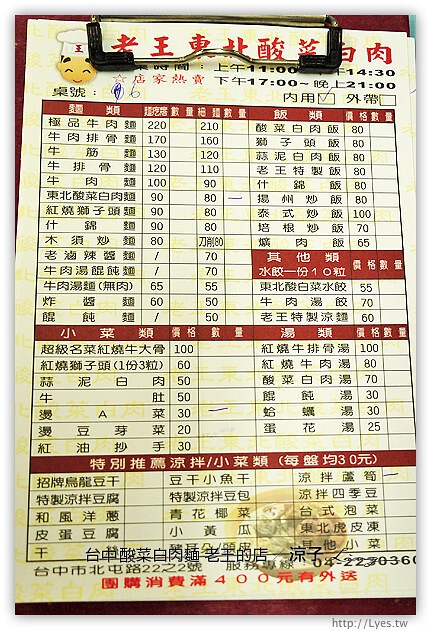 王 老王東北酸菜白肉
業時間：上午11:00 下午14:30
☆店家熱賣 下午17:00~晚上21:00
桌號： 6 內用 ✓ 外帶
麵類 麵疙瘩 數量 細麵 數量
極品牛肉麵 220 210
牛肉排骨麵 170 160
牛筋麵 130 120
牛排骨麵 120 110
牛肉麵 100 90
東北酸菜白肉麵 90 80 一
紅燒獅子頭麵 90 80
什錦麵 90 80
木須炒麵 80 刀削80
老滷辣醬麵 / 70
牛肉湯餛飩麵 / 70
牛肉湯麵(無肉) 65 55
炸醬麵 60 50
餛飩麵 / 50
飯類 價格 數量
酸菜白肉飯 80
獅子頭飯 80
蒜泥白肉飯 80
老王特製飯 80
什錦飯 80
揚州炒飯 80
泰式炒飯 100
培根炒飯 70
爌肉飯 65
其他類 價格 數量
水餃一份10粒
東北酸白菜水餃 55
牛肉湯餃 70
老王特製涼麵 60
小菜類 價格 數量
超級名菜紅燒牛大骨 100
紅燒獅子頭(1份3粒) 60
蒜泥白肉 50
牛肚 50
燙A菜 30 一
燙豆芽菜 20
紅油抄手 30
湯類 價格 數量
紅燒牛排骨湯 100
紅燒牛肉湯 80
酸菜白肉湯 70
餛飩湯 30
蛤蠣湯 30
蛋花湯 25
特別推薦涼拌/小菜類 (每盤均30元)
招牌烏龍豆干 豆干小魚干 涼拌蘆筍 一
特製涼拌豆腐 特製涼拌豆包 涼拌四季豆
和風洋蔥 青花椰菜 台式泡菜
皮蛋豆腐 小黃瓜 東北虎皮凍
干 其他小菜
台中酸菜白肉麵-老王的店 涼子
台中市北屯路22之2號 服務專線 04-2230360
團購消費滿400元有外送
http://Lyes.tw